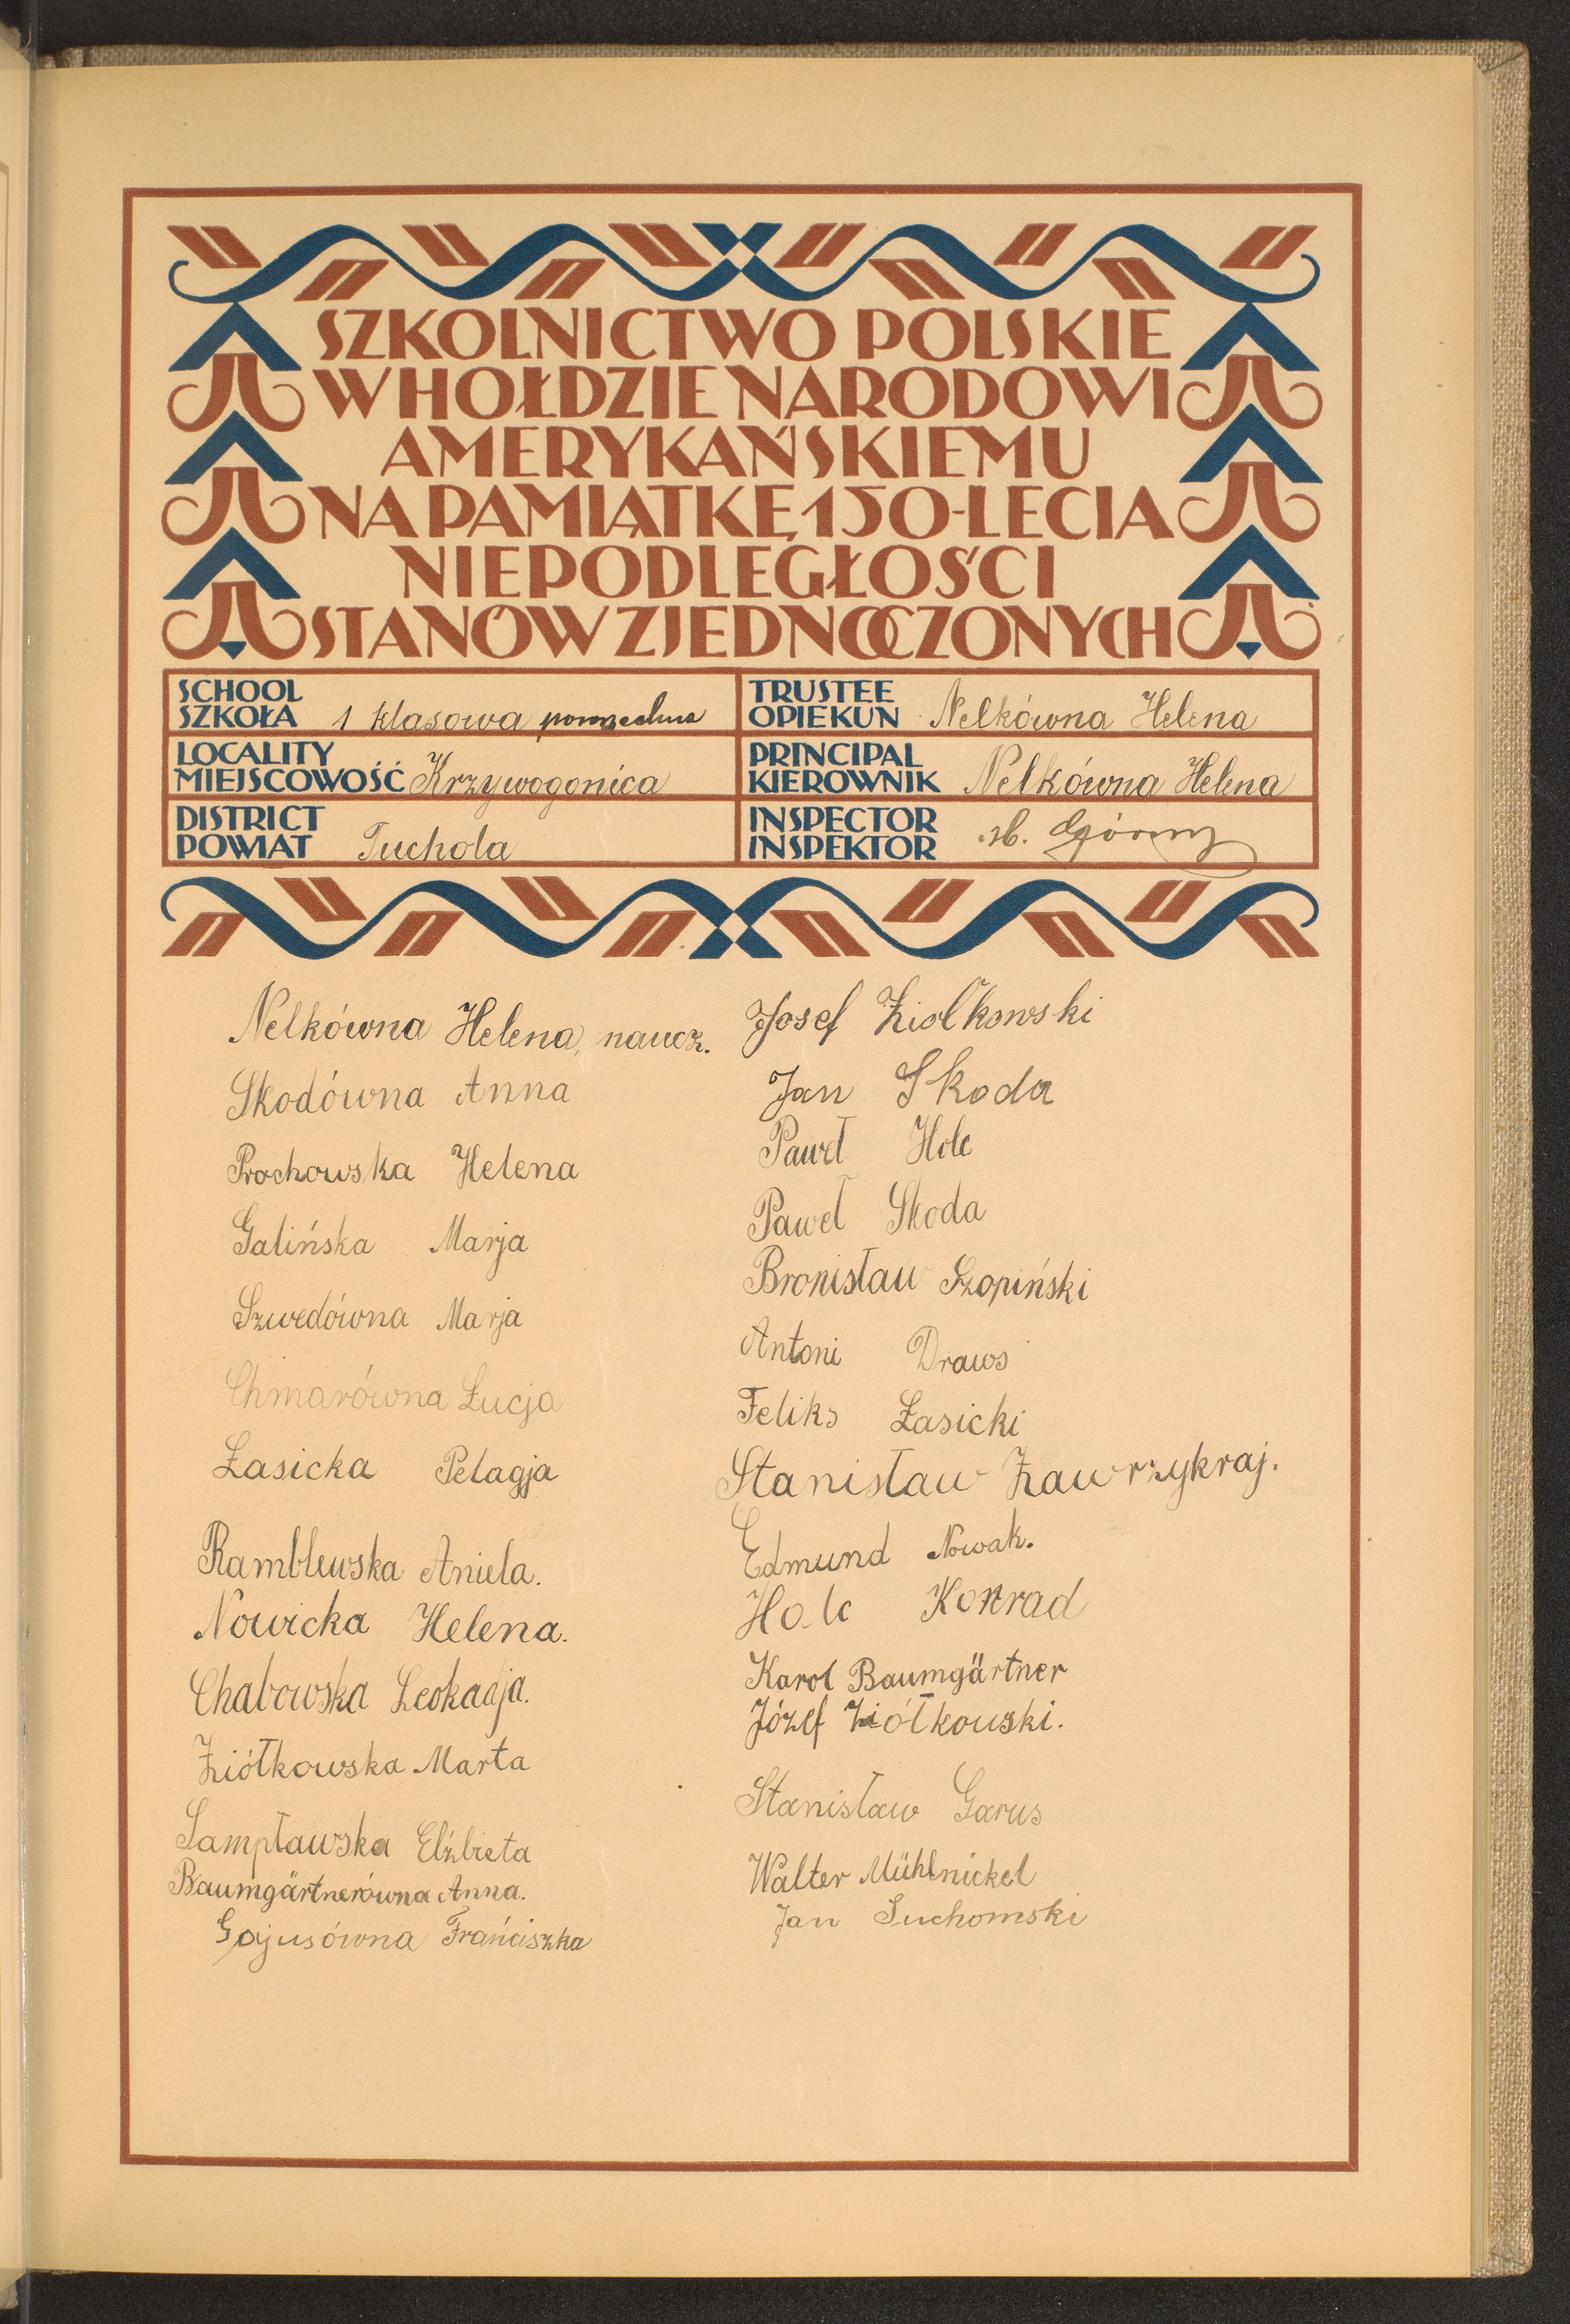 SZKOLNICTWO POLSKIE
W HOŁDZIE NARODOWI
AMERYKAŃSKIEMU
NA PAMIĄTKĘ 150-LECIA
NIEPODLEGŁOŚCI
STANÓW ZJEDNOCZONYCH
SCHOOL
SZKOŁA 1 klasowa powszechna
TRUSTEE
OPIEKUN Nelkówna Helena
LOCALITY
MIEJSCOWOŚĆ Krzywogonica
PRINCIPAL
KIEROWNIK Nelkówna Helena
DISTRICT
POWIAT Tuchola
INSPECTOR
INSPEKTOR Górny
Nelkówna Helena, naucz.
Skodówna Anna
Prochowska Helena
Galińska Marja
Szwedówna Marja
Chmarówna Łucja
Łasicka Pelagja
Ramblewska Aniela.
Nowicka Helena.
Chabowska Leokadja.
Ziółkowska Marta
Sampławska Elżbieta
Baumgärtnerówna Anna.
Gajusówna Frańciszka
Josef Ziołkowski
Jan Skoda
Paweł Holc
Paweł Skoda
Bronisław Szopiński
Antoni Draws
Feliks Łasicki
Stanisław Zawrzykraj.
Edmund Nowak.
Holc Konrad
Karol Baumgärtner
Józef Ziółkowski.
Stanisław Garus
Walter Mühlnickel
Jan Suchomski